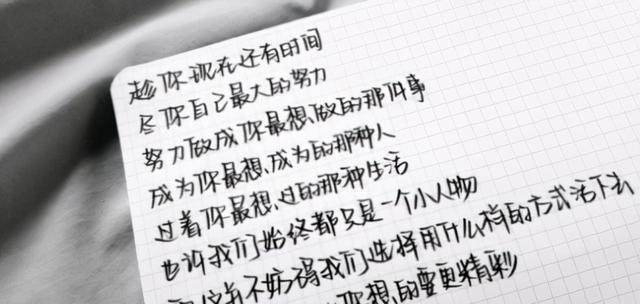 趁你现在还有时间
尽你自己最大的努力
努力做成你最想做的那件事
成为你最想成为的那种人
过着你最想过的那种生活
也许我们始终都只是一个小人物
但这并不妨碍我们选择用什么样的方式活下去
你想的要更精彩